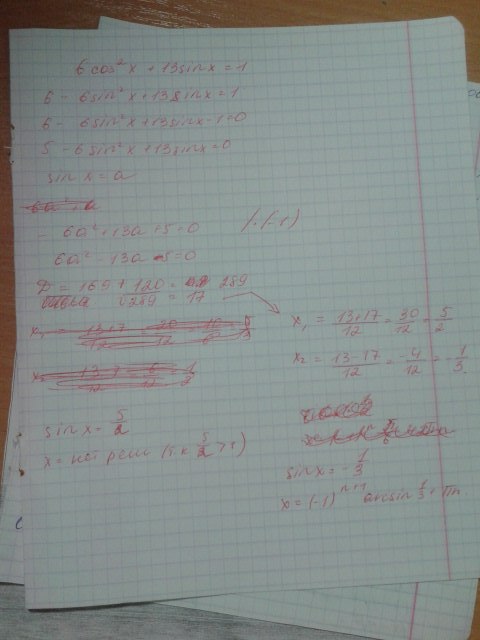 6cos²x + 13sinx = 1
6 - 6sin²x + 13sinx = 1
6 - 6sin²x + 13sinx - 1 = 0
5 - 6sin²x + 13sinx = 0
sin x = a
- 6a² + 13a + 5 = 0 /·(-1)
6a² - 13a - 5 = 0
D = 169 + 120 = 289
√289 = 17
x₁ = 13+17/12 = 30/12 = 5/2
x₂ = 13-17/12 = -4/12 = -1/3
sin x = 5/2
x = нет реш (т.к 5/2 > 1)
sinx = -1/3
x = (-1)ⁿ⁺¹ arcsin 1/3 + πn